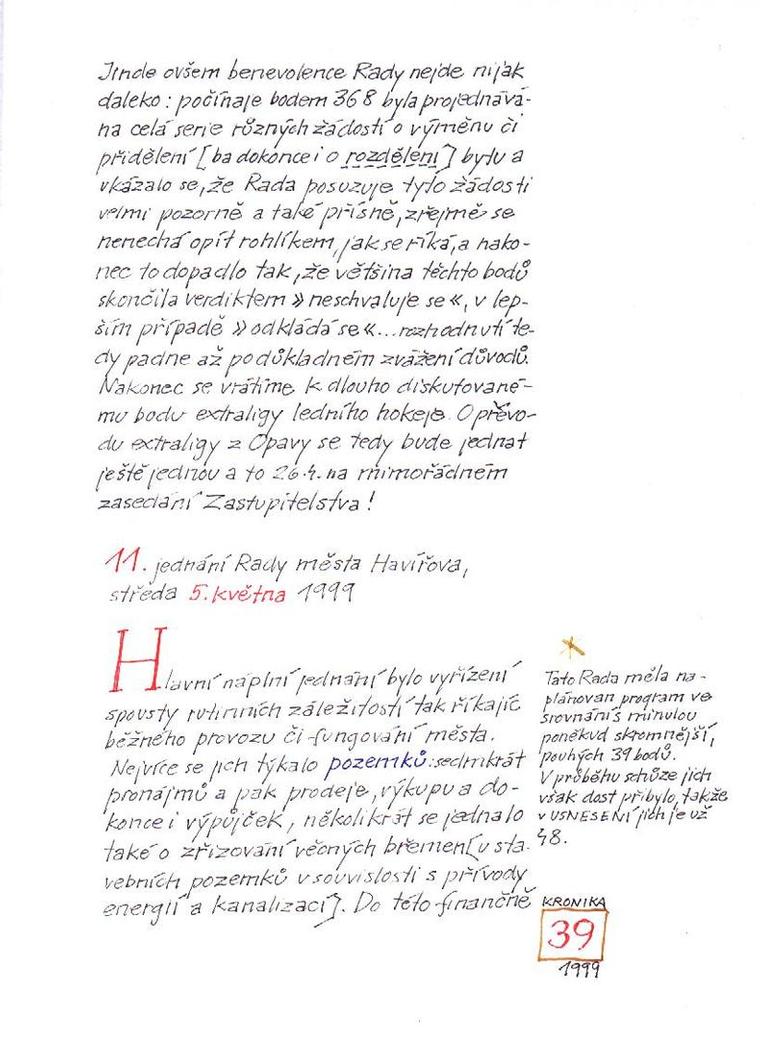 Jinde ovšem benevolence Rady nejde nijak
daleko: počínaje bodem 368 byla projednává-
na celá serie různých žádostí o výměnu či
přidělení [ba dokonce i o rozdělení] bytu a
ukázalo se, že Rada posuzuje tyto žádosti
velmi pozorně a také přísně, zřejmě se
nenechá opít rohlíkem, jak se říká, a nako-
nec to dopadlo tak, že většina těchto bodů
skončila verdiktem » neschvaluje se «, v lep-
ším případě » odkládá se «... rozhodnutí te-
dy padne až po důkladném zvážení důvodů.
Nakonec se vrátíme k dlouho diskutované-
mu bodu extraligy ledního hokeje. O převo-
du extraligy z Opavy se tedy bude jednat
ještě jednou a to 26.4. na mimořádném
zasedání Zastupitelstva!
11. jednání Rady města Havířova,
středa 5. května 1999
Hlavní náplní jednání bylo vyřízení
spousty rutinních záležitostí tak říkajíc
běžného provozu či fungování města.
Nejvíce se jich týkalo pozemků: sedmkrát
pronájmů a pak prodeje, výkupu a do-
konce i výpůjček, několikrát se jednalo
také o zřizování věcných břemen [u sta-
vebních pozemků v souvislosti s přívody
energií a kanalizací]. Do této finančně
Tato Rada měla na-
plánovan program ve
srovnání s minulou
poněkud skromnější,
pouhých 39 bodů.
V průběhu schůze jich
však dost přibylo, takže
v USNESENÍ jich je už
48.
KRONIKA
39
1999